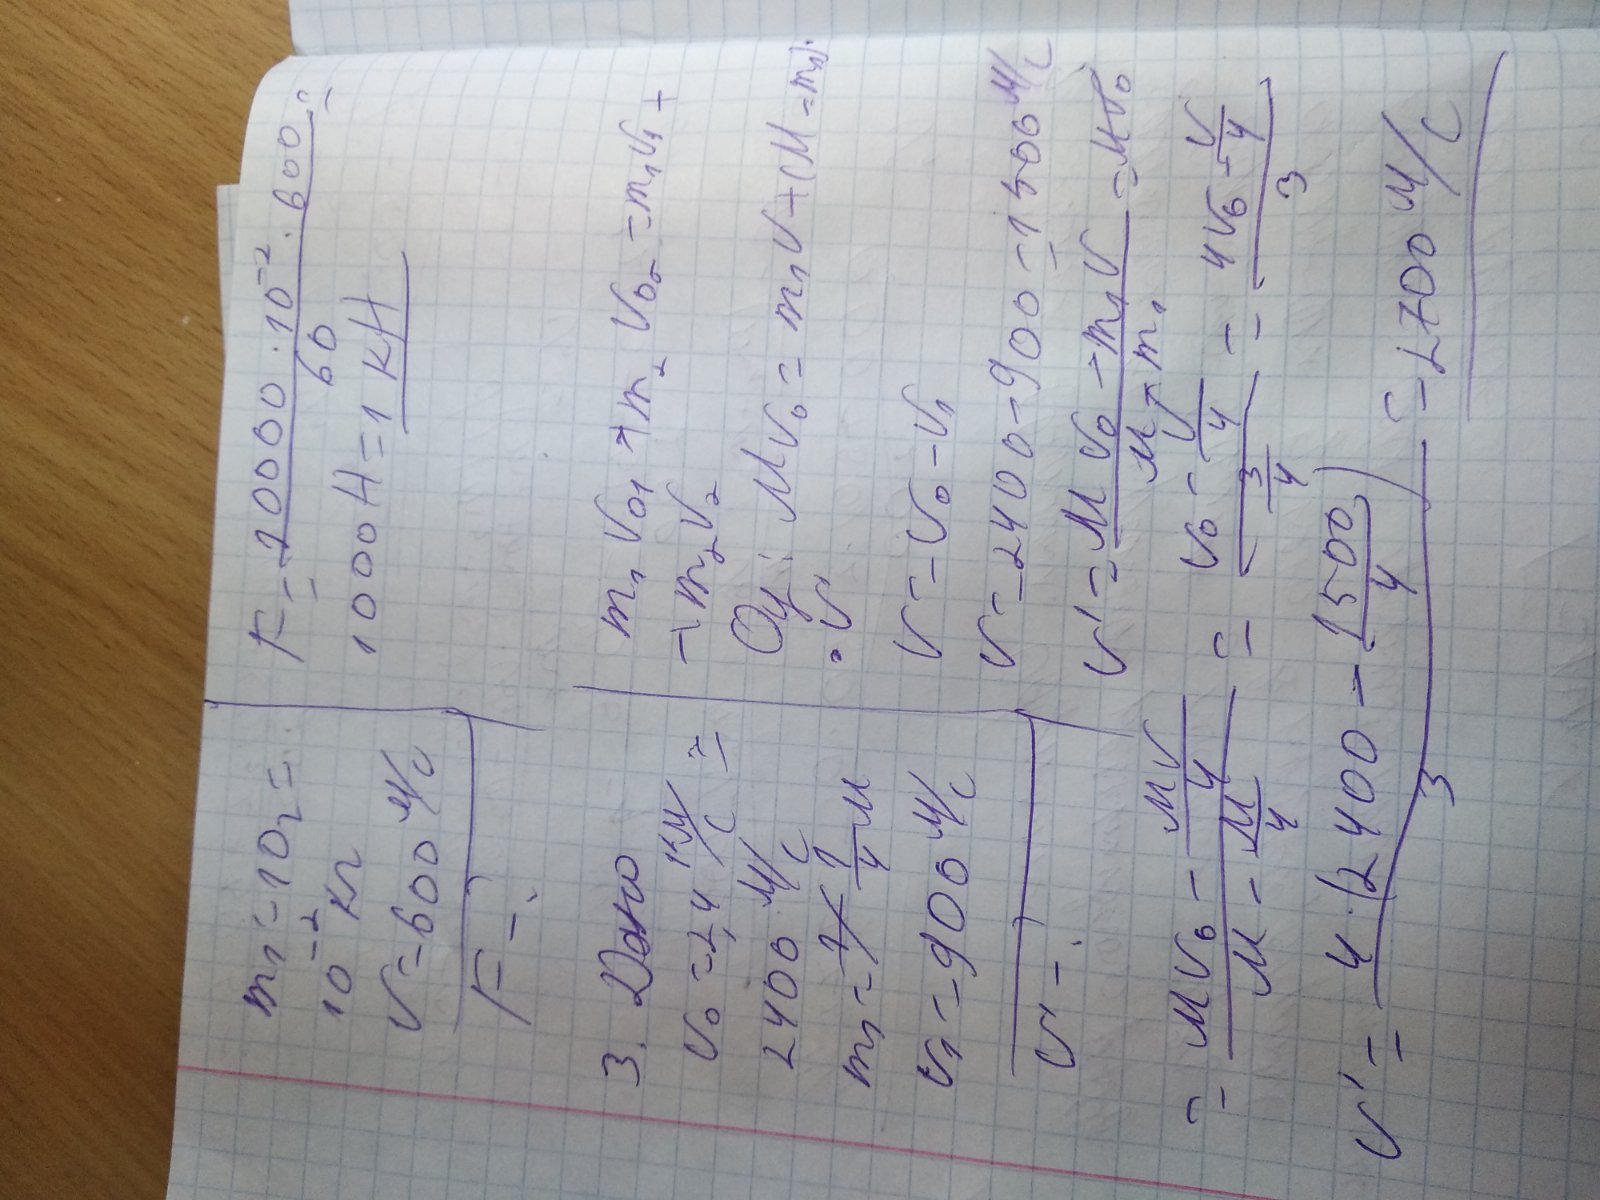 m₁ = 10г =
10⁻² кг
V = 600 м/с
F - ?
F = 10000 · 10⁻² · 600 / 60 =
= 1000 Н = 1 кН
3. Дано
V₀ = 2,4 км/с =
2400 м/с
m₁ = 1/4 M
V₁ = 900 м/с
V' - ?
m₁ V₀₁ + m₂ V₀₂ = m₁V₁ +
+ m₂V₂
Oy: MV₀ = m₁V + (M - m₁) ·
· V'
V = V₀ - V₁
V = 2400 - 900 = 1500 м/с
V' = M V₀ - m₁V / M - m₁ =
= MV₀ - MV/4 / M - M/4 = V₀ - V/4 / 3/4 = 4V₀ - V/4 / 3
V' = 4 · (2400 - 1500/4) / 3 = 2700 м/с